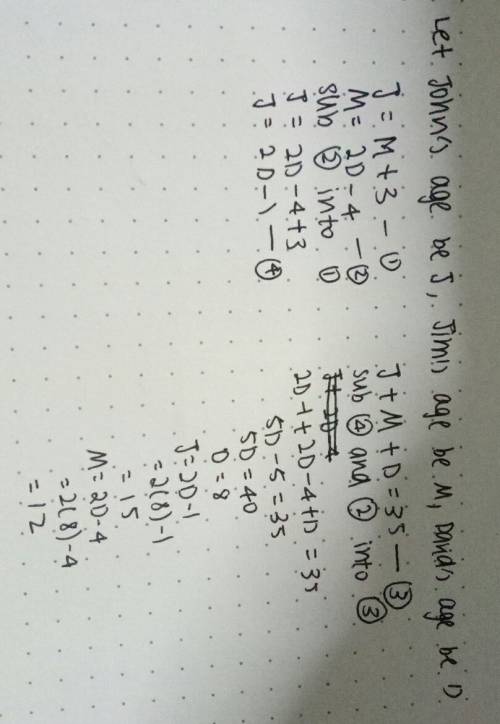 Let John's age be J, Jim's age be M, David's age be D.
J = M + 3 — ①
M = 2D - 4 — ②
sub ② into ①
J = 2D - 4 + 3
J = 2D - 1 — ④
J + M + D = 35 — ③
sub ④ and ② into ③
2D - 1 + 2D - 4 + D = 35
5D - 5 = 35
5D = 40
D = 8
J = 2D - 1
= 2(8) - 1
= 15
M = 2D - 4
= 2(8) - 4
= 12